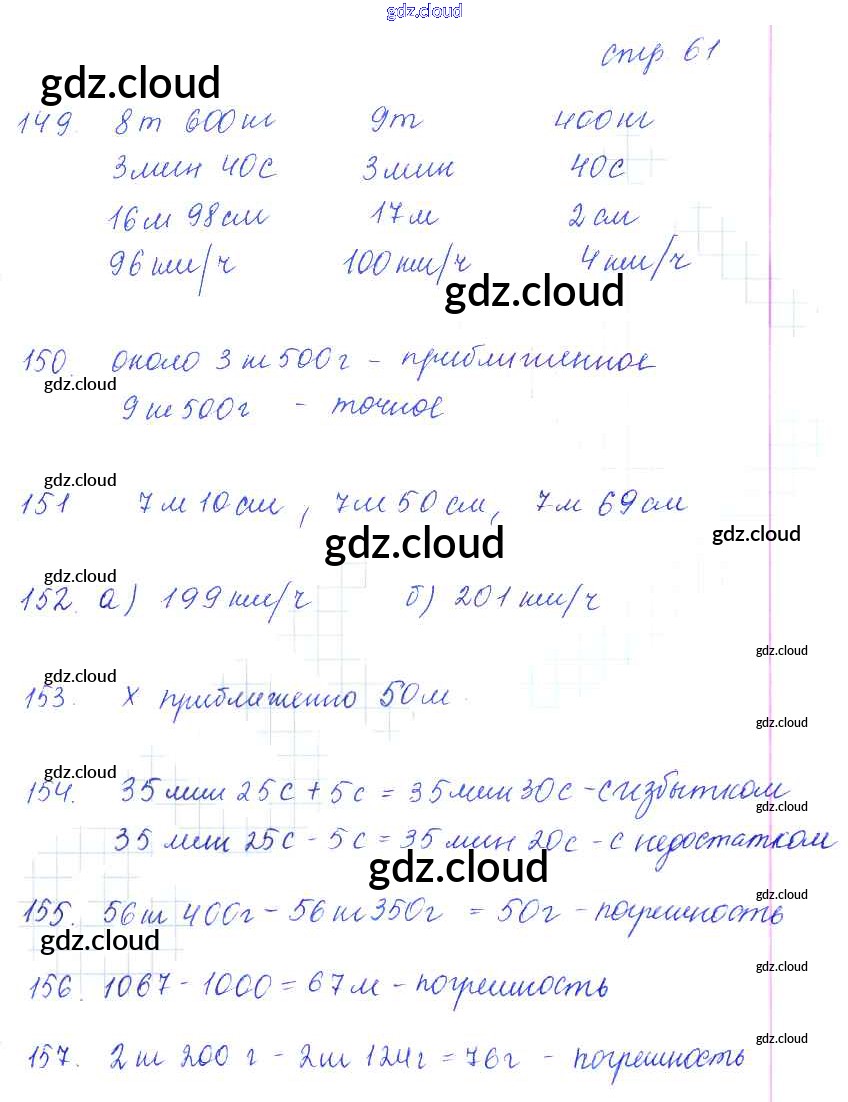 gdz.cloud
стр 61
gdz.cloud
149. 8т 600кг 9т 400кг
3мин 40с 3мин 40с
16м 98см 17м 2см
96км/ч 100км/ч 4км/ч
gdz.cloud
150. около 3кг 500г - приближенное
gdz.cloud
9кг 500г - точное
gdz.cloud
151 7м 10см, 7м 50см, 7м 69см
gdz.cloud gdz.cloud
gdz.cloud
152. а) 199км/ч б) 201км/ч
gdz.cloud
gdz.cloud
153. х приближенно 50м.
gdz.cloud
gdz.cloud
154. 35мин 25с + 5с = 35мин 30с - с избытком
gdz.cloud
35 мин 25с - 5с = 35 мин 20с - с недостатком
gdz.cloud
gdz.cloud
155. 56кг 400г - 56кг 350г = 50г - погрешность
gdz.cloud
gdz.cloud
156. 1067 - 1000 = 67м - погрешность
gdz.cloud
157. 2кг 200г - 2кг 124г = 76г - погрешность